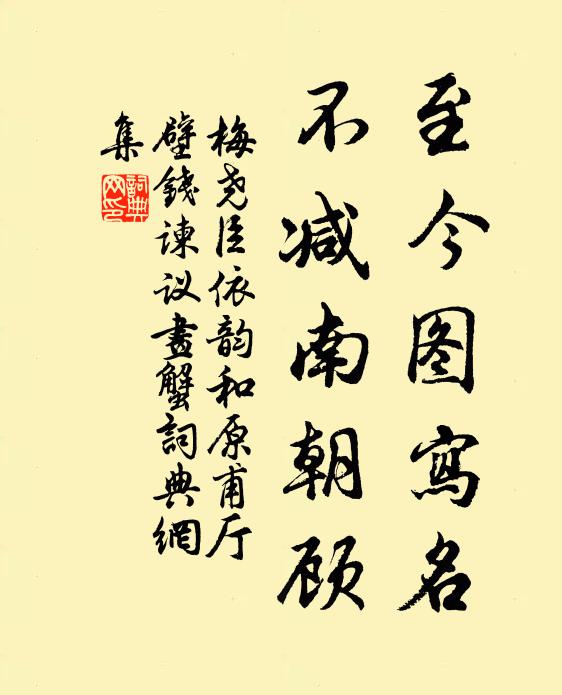 至今图寫名
不减南朝顾
梅尧臣依韵和原甫厅
壁錢谏议畫蟹詞典網
集
詞典
网印